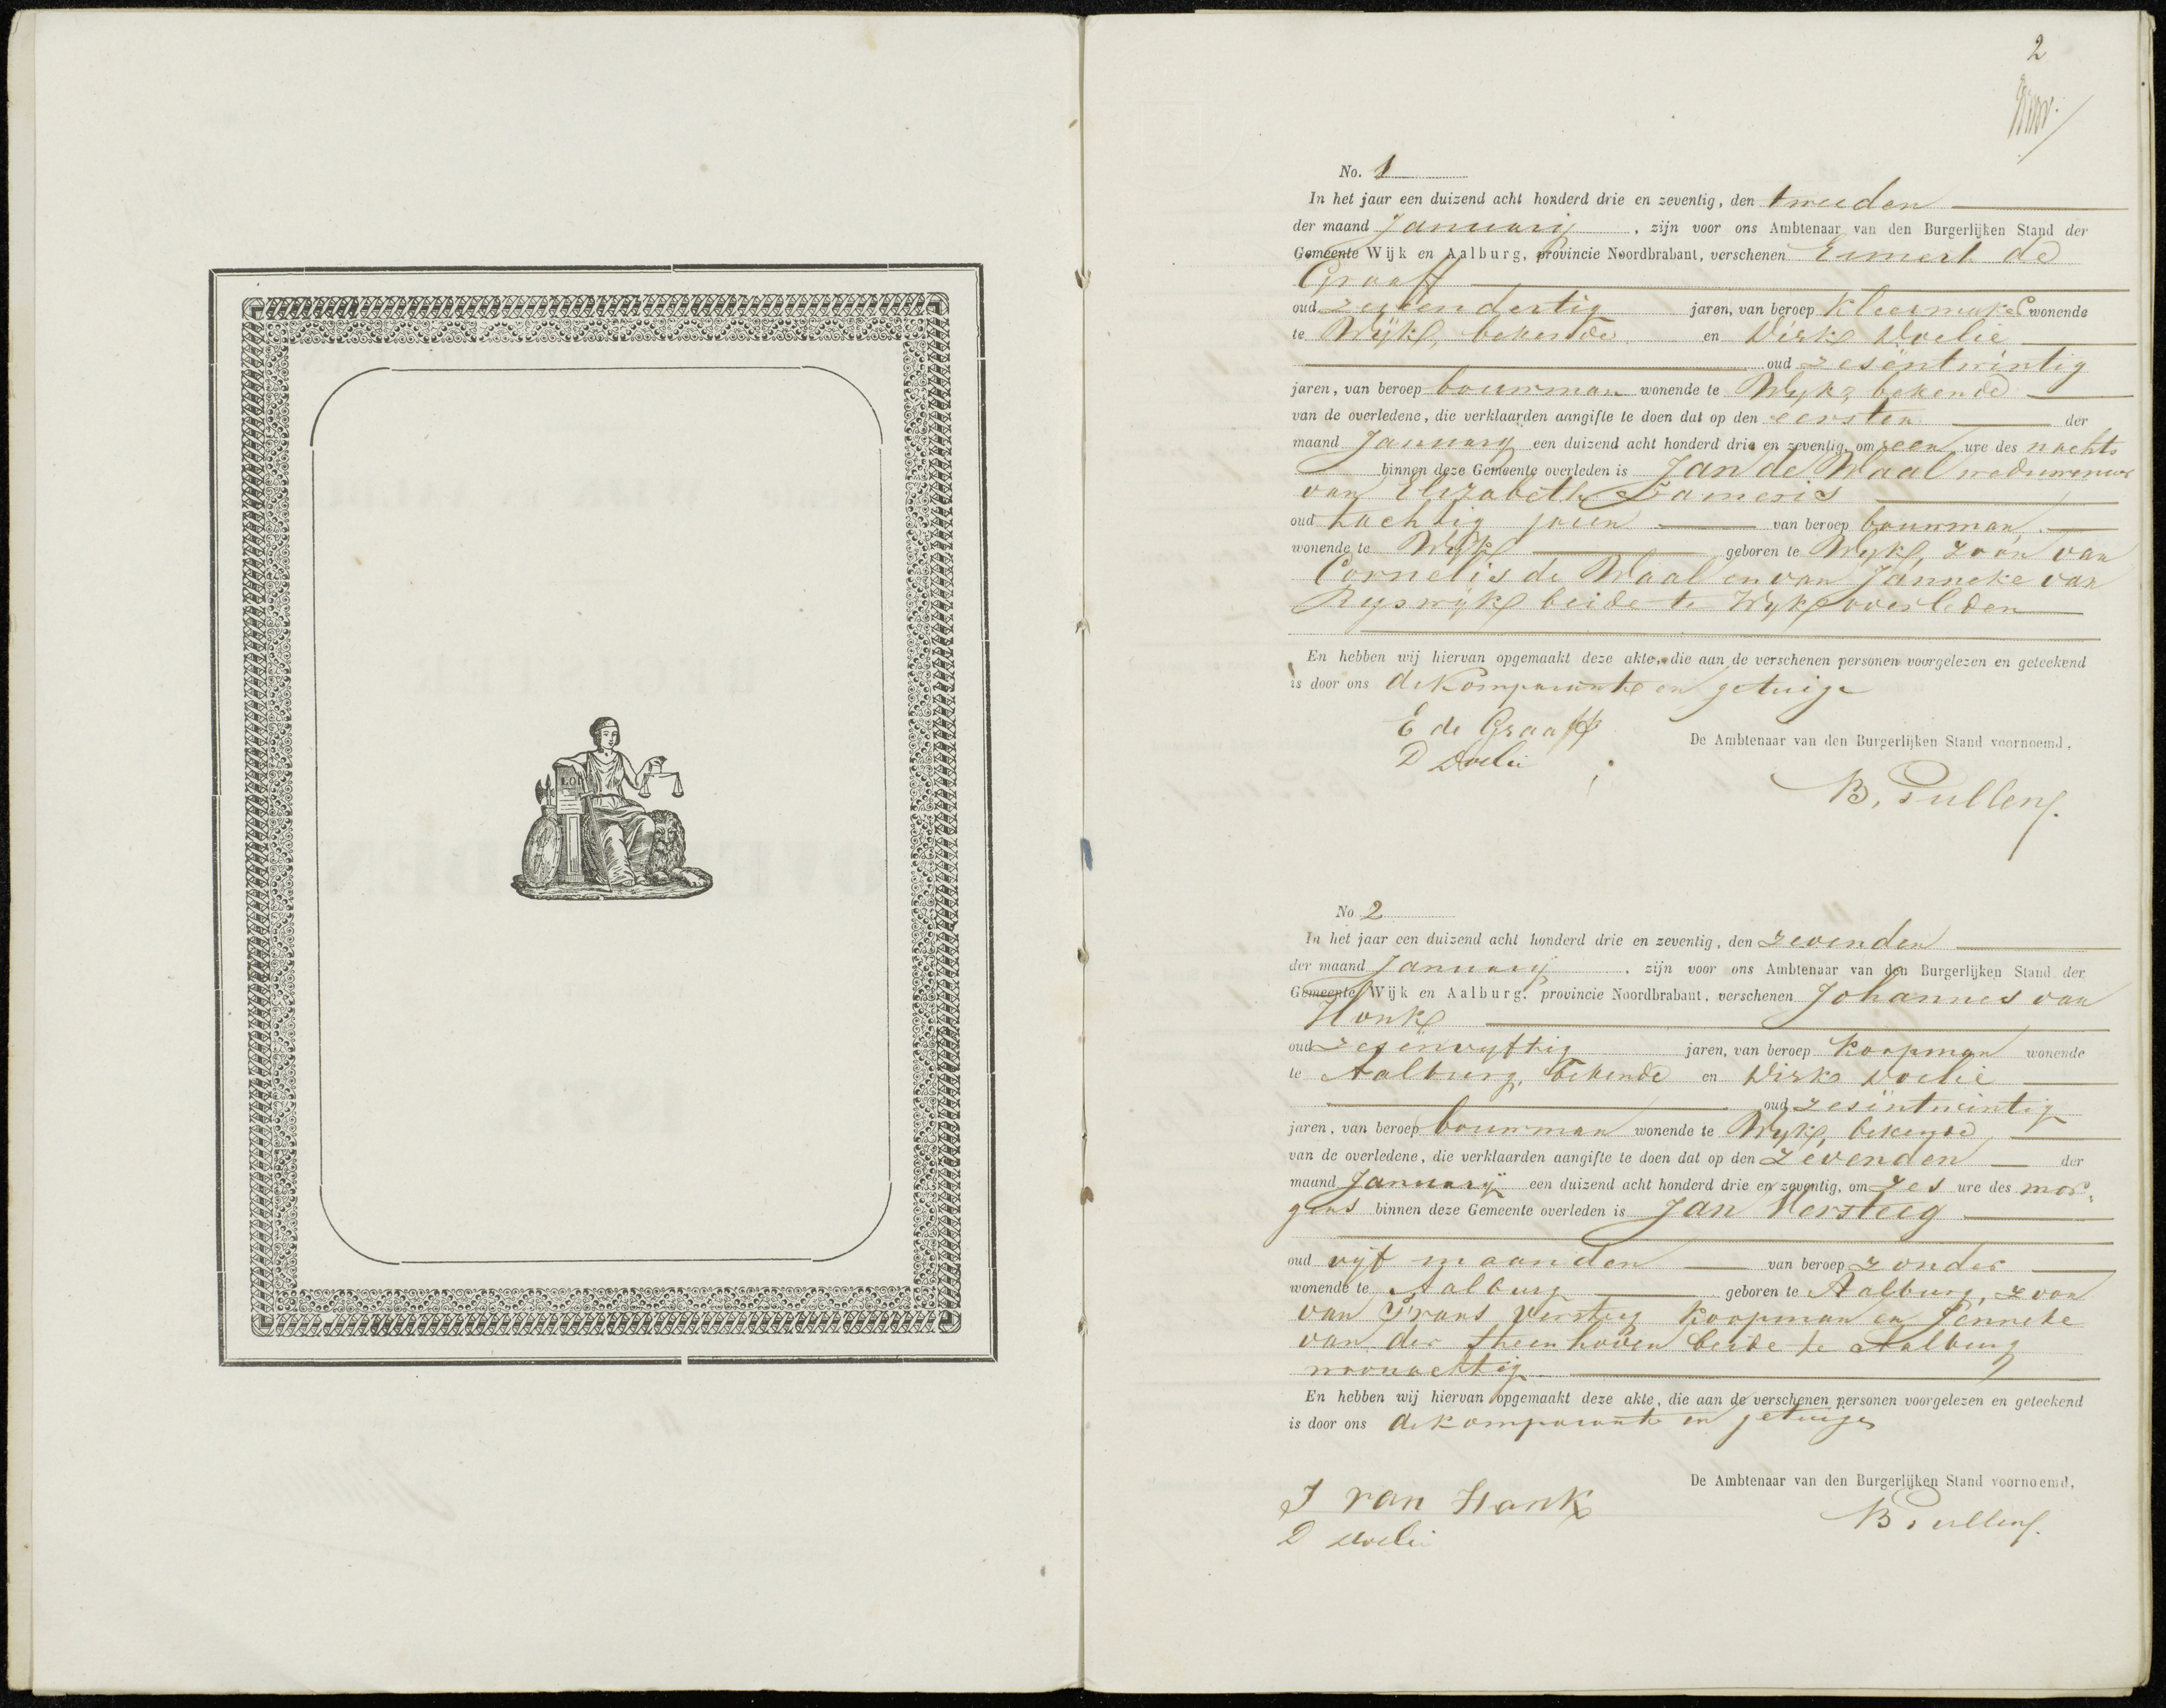 2
No. 1
In het jaar een duizend acht honderd drie en zeventig, den tweeden
der maand Januarij, zijn voor ons Ambtenaar van den Burgerlijken Stand der
Gemeente Wijk en Aalburg, provincie Noordbrabant, verschenen Eimert de
Graaff
oud zevendertig jaren, van beroep kleermaker wonende
te Wijk, bekende en Dirk Doelie
oud zesentwintig
jaren, van beroep bouwman wonende te Wijk, bekende
van de overledene, die verklaarden aangifte te doen dat op den eersten der
maand Januarij een duizend acht honderd drie en zeventig, om een ure des nachts
binnen deze Gemeente overleden is Jan de Waal weduwenaar
van Elizabeth
oud tachtig jaren van beroep bouwman,
wonende te Wijk geboren te Wijk, zoon van
Cornelis de Waal en van Janneke van
Rijswijk beide te Wijk overleden
En hebben wij hiervan opgemaakt deze akte, die aan de verschenen personen voorgelezen en geteekend
is door ons de komparante en getuige
E de Graaff
D Doelie
De Ambtenaar van den Burgerlijken Stand voornoemd,
B. Pullens.
No 2
In het jaar een duizend acht honderd drie en zeventig, den zevenden
der maand Januarij, zijn voor ons Ambtenaar van den Burgerlijken Stand der
Gemeente Wijk en Aalburg, provincie Noordbrabant, verschenen Johannes van
Honk
oud zesenvyftig jaren, van beroep koopman wonende
te Aalburg, bekende en Dirk Doelie
oud zesëntwintig
jaren, van beroep bouwman wonende te Wijk, bekende
van de overledene, die verklaarden aangifte te doen dat op den zevenden der
maand Januarij een duizend acht honderd drie en zeventig, om zes ure des mor-
gens binnen deze Gemeente overleden is Jan Versteeg
oud vijf maanden van beroep zonder
wonende te Aalburg geboren te Aalburg, zoon
van Frans Versteeg koopman en Jenneke
van der Steenhoven beide te Aalburg
woonachtig
En hebben wij hiervan opgemaakt deze akte, die aan de verschenen personen voorgelezen en geteekend
is door ons de komparante en getuigen
De Ambtenaar van den Burgerlijken Stand voornoemd,
J van Honk
B. Pullens.
D Doelie